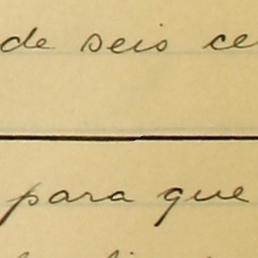 de seis ce
para que